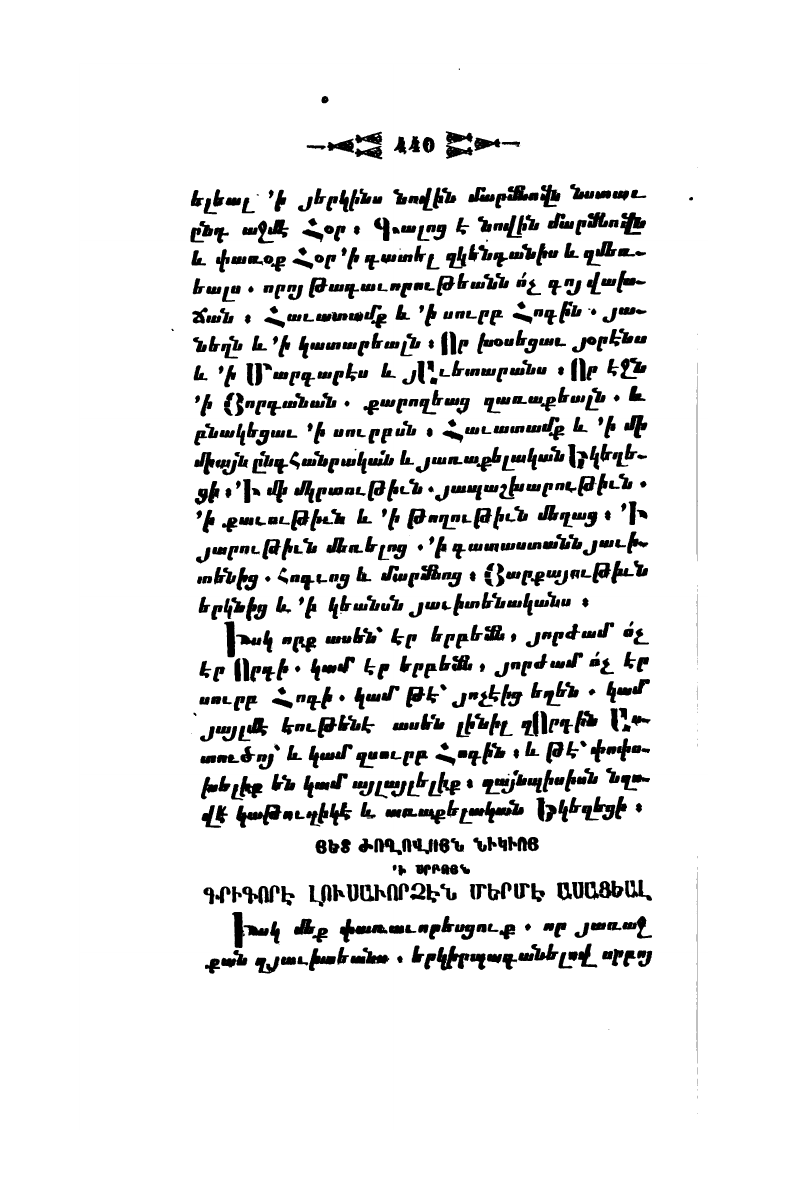 440
ելեալ ՚ի յերկինս նովին մարմնովն նստաւ
ընդ աջմէ Հօր ։ Գալոց է նովին մարմնովն
և փառօք Հօր ՚ի դատել զկենդանիս և զմեռ-
եալս . որոյ թագաւորութեանն ո՛չ գոյ վախ-
ճան ։ Հաւատամք և ՚ի սուրբ Հոգին . յա-
նեղն և ՚ի կատարեալն ։ Որ խօսեցաւ յօրէնս
և ՚ի Մարգարէս և յԱւետարանս ։ Որ էջն
՚ի Յորդանան . քարոզեաց զառաքեալն . և
բնակեցաւ ՚ի սուրբսն ։ Հաւատամք և ՚ի մի
միայն ընդհանրական և յառաքելական Եկեղե-
ցի ։ ՚Ի մի մկրտութիւն . յապաշխարութիւն .
՚ի քաւութիւն և ՚ի թողութիւն մեղաց ։ ՚Ի
յարութիւն մեռելոց . ՚ի դատաստանն յաւի-
տենից . հոգւոց և մարմնոց ։ Յարքայութիւն
երկնից և ՚ի կեանսն յաւիտենականս ։
Իսկ որք ասեն՝ էր երբեմն , յորժամ ո՛չ
էր Որդի . կամ էր երբեմն , յորժամ ո՛չ էր
սուրբ Հոգի . կամ թէ՝ յոչէից եղեն . կամ
յայլմէ էութենէ ասեն լինիլ զՈրդին Աս-
տուծոյ՝ և կամ զսուրբ Հոգին ։ և թէ՝ փոփո-
խելիք են կամ այլայլելիք ։ զայնպիսիսն նզո-
վէ կաթուղիկէ և առաքելական Եկեղեցի ։
ՅԵՏ ԺՈՂՈՎՈՅՆ ՆԻԿԻՈՅ
՚Ի ՍՐԲՈՅՆ
ԳՐԻԳՈՐԷ ԼՈՒՍԱՒՈՐՉԷՆ ՄԵՐՄԷ ԱՍԱՑԵԱԼ
Իսկ մեք փառաւորեսցուք . որ յառաջ
քան զյաւիտեանս . երկիրպագանելով սրբոյ